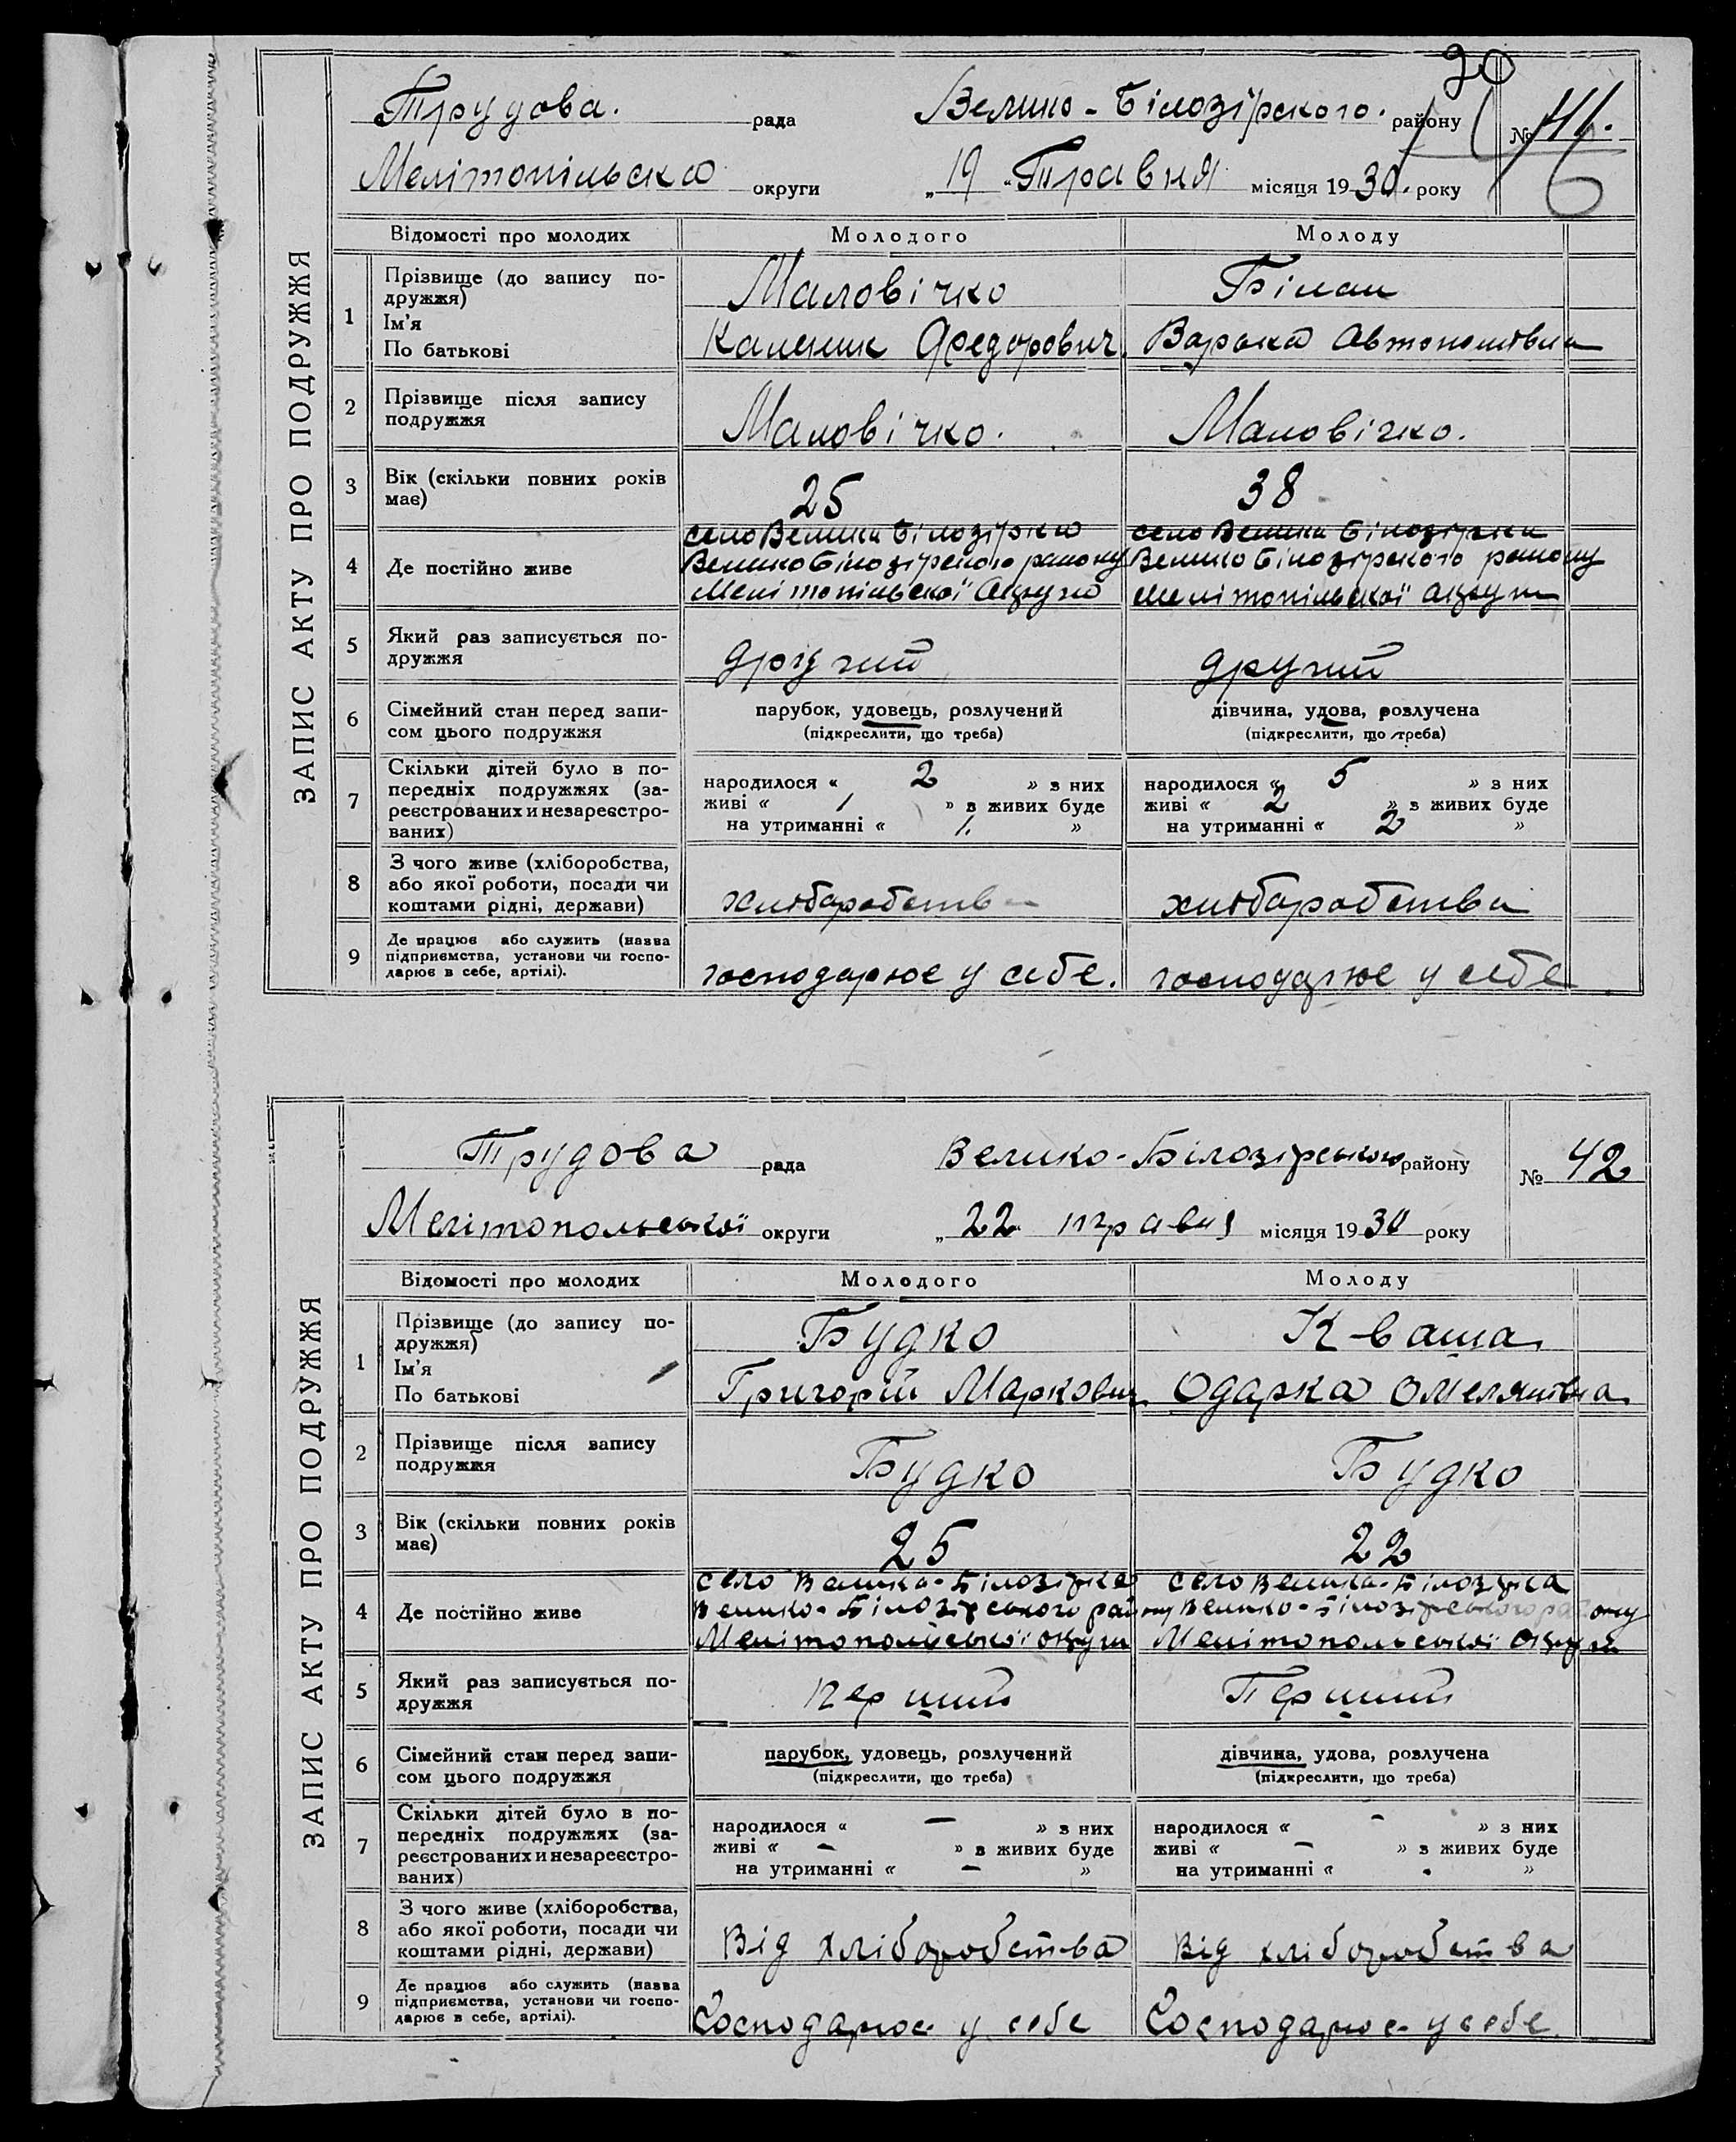 20
Трудова. рада Велико-Білозірского. району № 41.
Мелітопільска округи „19" Травня місяця 1930. року
ЗАПИС АКТУ ПРО ПОДРУЖЖЯ
Відомості про молодих Молодого Молоду
1 Прізвище (до запису по-
дружжя) Маловічко Білан
Ім'я
По батькові Каленик Федорович. Варька Автономівна
2 Прізвище після запису
подружжя Маловічко. Маловічко.
3 Вік (скільки повних років
має) 25 38
село Велика Білозірка село Велика Білозірка
4 Де постійно живе Велико Білозірского району Велико Білозірского району
Мелітопільскої округи Мелітопільскої округи
5 Який раз записується по-
дружжя другий другий
6 Сімейний стан перед запи-
сом цього подружжя парубок, удовець, розлучений дівчина, удова, розлучена
(підкреслити, що треба) (підкреслити, що треба)
7 Скільки дітей було в по-
передніх подружжях (за-
реєстрованих и незареєстро-
ваних) народилося « 2 » з них народилося « 5 » з них
живі « 1 » з живих буде живі « 2 » з живих буде
на утриманні « 1. » на утриманні « 2 »
8 З чого живе (хліборобства,
або якої роботи, посади чи
коштами рідні, держави) хліборобства хліборобства
9 Де працює або служить (назва
підприємства, установи чи госпо-
дарює в себе, артілі). господарює у себе. господарює у себе
Трудова рада Велико-Білозірського району № 42
Мелітопольської округи „22" травня місяця 1930 року
ЗАПИС АКТУ ПРО ПОДРУЖЖЯ
Відомості про молодих Молодого Молоду
1 Прізвище (до запису по-
дружжя) Будко Кваша
Ім'я
По батькові Григорій Маркович Одарка Омелянівна
2 Прізвище після запису
подружжя Будко Будко
3 Вік (скільки повних років
має) 25 22
село Велика-Білозірка село Велика-Білозірка
4 Де постійно живе Велико-Білозірського району Велико-Білозірського району
Мелітопольської округи Мелітопольської округи
5 Який раз записується по-
дружжя перший Перший
6 Сімейний стан перед запи-
сом цього подружжя парубок, удовець, розлучений дівчина, удова, розлучена
(підкреслити, що треба) (підкреслити, що треба)
7 Скільки дітей було в по-
передніх подружжях (за-
реєстрованих и незареєстро-
ваних) народилося « – » з них народилося « – » з них
живі « – » з живих буде живі « – » з живих буде
на утриманні « – » на утриманні « - »
8 З чого живе (хліборобства,
або якої роботи, посади чи
коштами рідні, держави) Від хліборобства Від хліборобства
9 Де працює або служить (назва
підприємства, установи чи госпо-
дарює в себе, артілі). Господарює у себе Господарює у себе